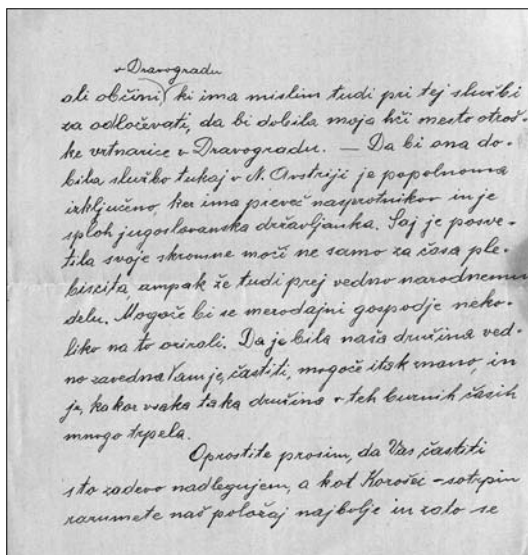 v Dravogradu
ali občini, ki ima mislim tudi pri tej službi
za odločevati, da bi dobila moja hči mesto otroš-
ke vrtnarice v Dravogradu. — Da bi ona do-
bila službo tukaj v N. Avstriji je popolnoma
izključeno, ker ima preveč nasprotnikov in je
sploh jugoslovanska državljanka. Saj je posve-
tila svoje skromne moči ne samo za časa ple-
biscita ampak že tudi prej vedno narodnemu
delu. Mogoče bi se merodajni gospodje neko-
liko na to ozirali. Da je bila naša družina ved-
no zavedna Vam je, častiti, mogoče itak znano, in
je, kakor vsaka taka družina v teh burnih časih
mnogo trpela.
Oprostite prosim, da Vas častiti
s to zadevo nadlegujem, a kot Korošec - sotrpin
razumete naš položaj najbolje in zato se